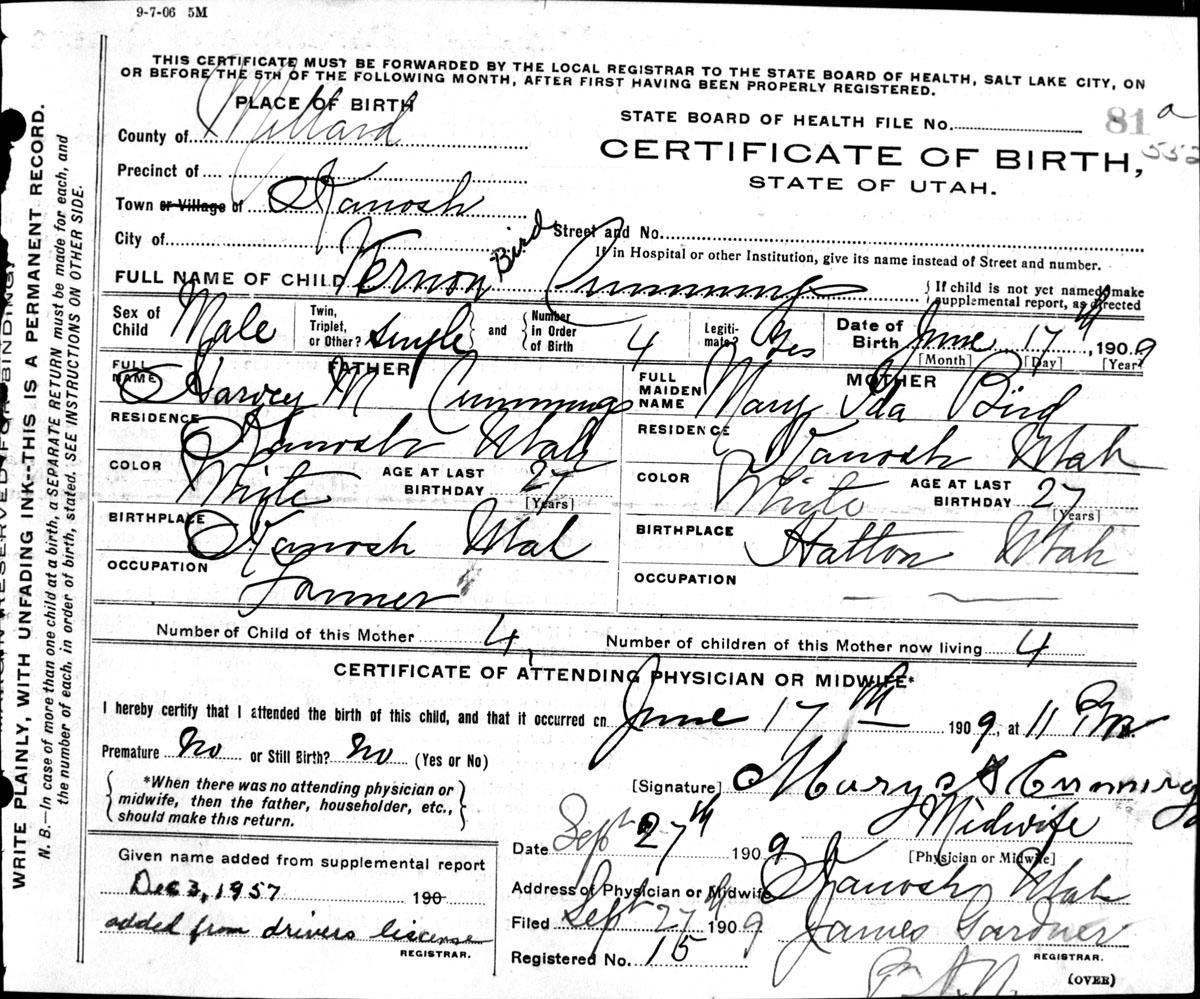 9-7-06 5M
THIS CERTIFICATE MUST BE FORWARDED BY THE LOCAL REGISTRAR TO THE STATE BOARD OF HEALTH, SALT LAKE CITY, ON
OR BEFORE THE 5TH OF THE FOLLOWING MONTH, AFTER FIRST HAVING BEEN PROPERLY REGISTERED.
PLACE OF BIRTH
County of Millard
STATE BOARD OF HEALTH FILE No. 81 a
552
CERTIFICATE OF BIRTH,
STATE OF UTAH.
Precinct of
Town or Village of Kanosh
City of
Street and No.
If in Hospital or other Institution, give its name instead of Street and number.
FULL NAME OF CHILD Vernon Bird Cummings
{ If child is not yet named, make
supplemental report, as directed
Sex of Child Male
Twin, Triplet, or Other? Single
and
Number in Order of Birth 4
Legitimate? Yes
Date of Birth June 17th, 1909
[Month] [Day] [Year]
FATHER
FULL NAME Harvey M Cummings
RESIDENCE Kanosh Utah
COLOR White
AGE AT LAST BIRTHDAY 27
[Years]
BIRTHPLACE Kanosh Utah
OCCUPATION Farmer
MOTHER
FULL MAIDEN NAME Mary Ida Bird
RESIDENCE Kanosh Utah
COLOR White
AGE AT LAST BIRTHDAY 27
[Years]
BIRTHPLACE Hatton Utah
OCCUPATION
Number of Child of this Mother 4,
Number of children of this Mother now living 4
CERTIFICATE OF ATTENDING PHYSICIAN OR MIDWIFE*
I hereby certify that I attended the birth of this child, and that it occurred on June 17th 1909, at 11 Pm
Premature No or Still Birth? No (Yes or No)
*When there was no attending physician or
midwife, then the father, householder, etc.,
should make this return.
[Signature] Mary Cummings
Midwife
[Physician or Midwife]
Date Sept 27th 1909
Address of Physician or Midwife Kanosh Utah
Filed Sept 27 1909
James Gardner
REGISTRAR.
Registered No. 15
(OVER)
Given name added from supplemental report
Dec 3, 1957 190
added from drivers liscense
REGISTRAR.
MARGIN RESERVED FOR BINDING
WRITE PLAINLY, WITH UNFADING INK--THIS IS A PERMANENT RECORD.
N. B.—In case of more than one child at a birth, a SEPARATE RETURN must be made for each, and
the number of each, in order of birth, stated. SEE INSTRUCTIONS ON OTHER SIDE.